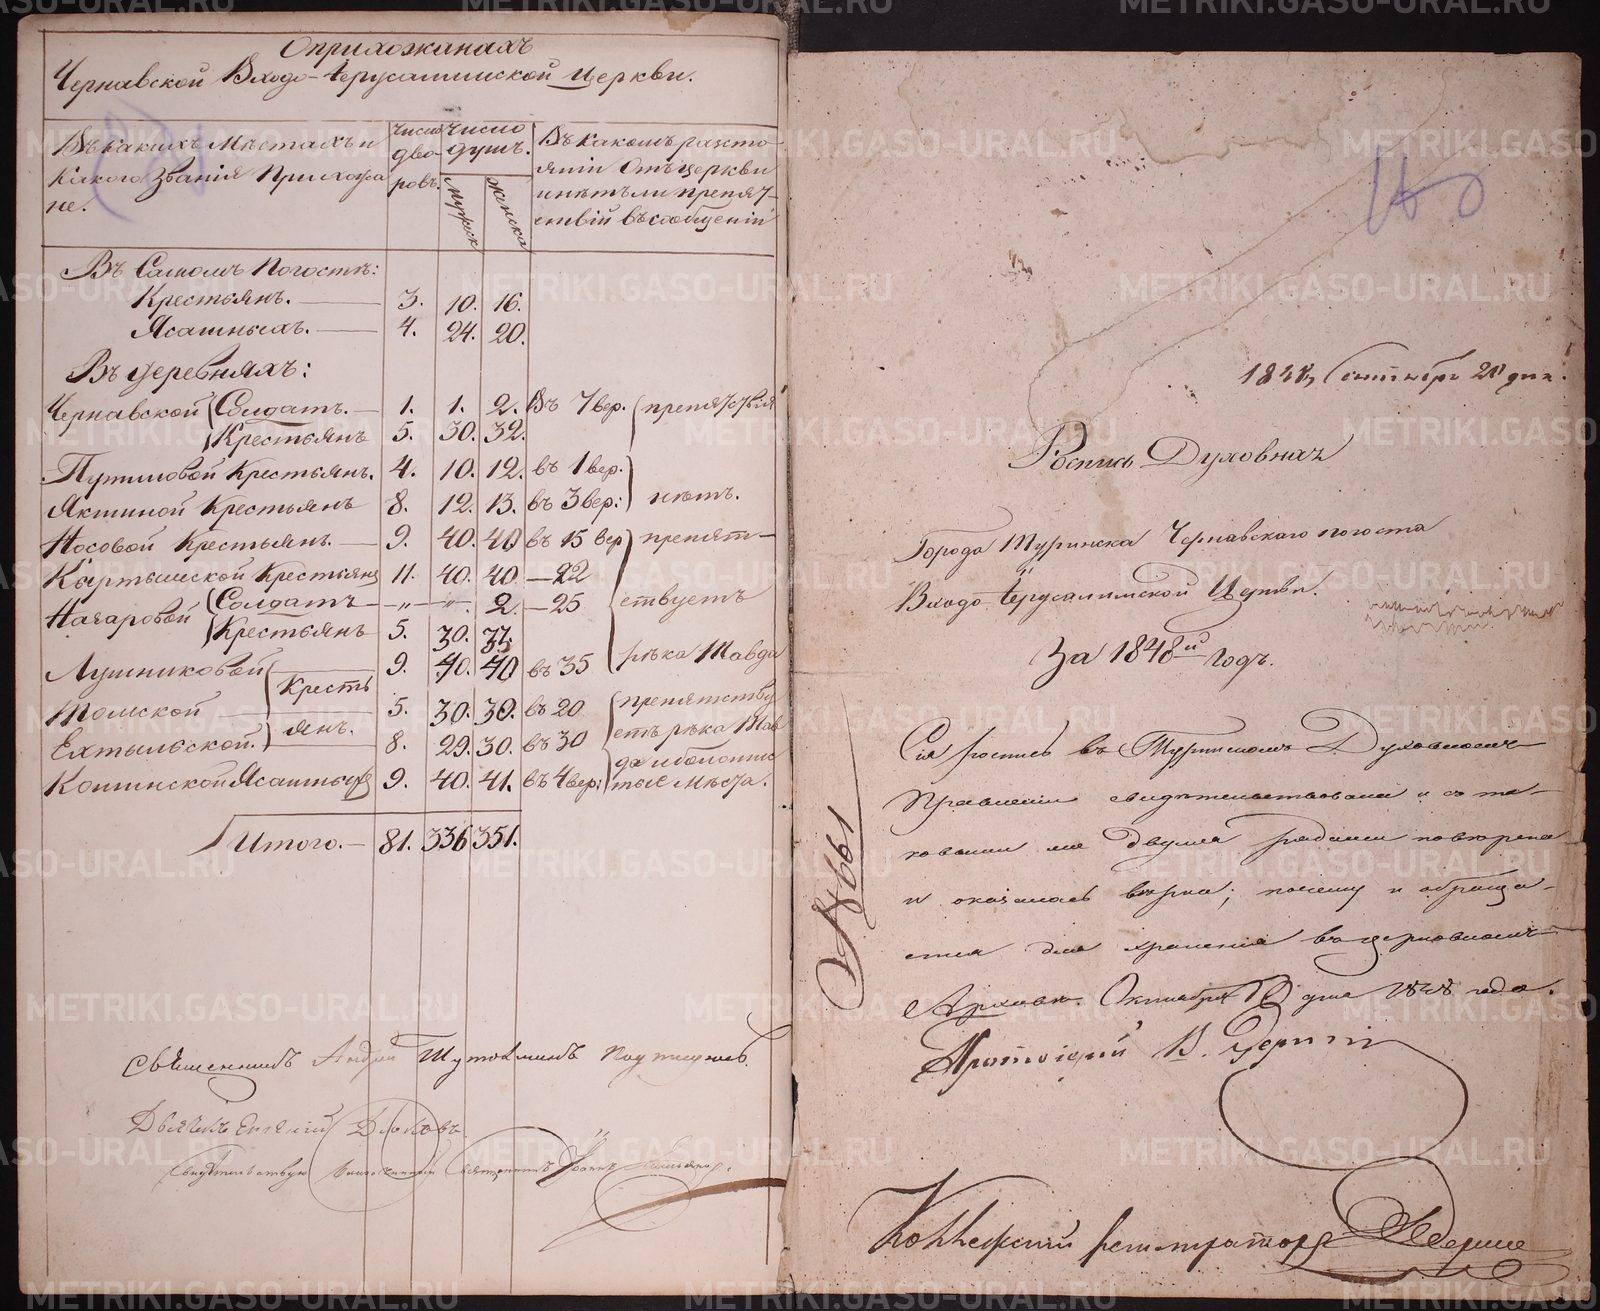 О прихожанахъ
Чернавской Входо-Іерусалимской Церкви.
Въ какихъ Мѣстахъ и какого Званія Прихожане.
Число дворовъ.
Число душъ.
Мужск
Женска
Въ какомъ разстояніи Отъ церкви и нѣтъ ли препятствій въ сообщеніи
Въ Самомъ Погостѣ:
Крестьянъ. 3. 10. 16.
Ясашныхъ. 4. 24. 20.
Въ деревняхъ:
Чернавской Солдатъ. 1. 1. 2. Въ 7 вер. препятствія
Крестьянъ 5. 30. 32.
Путиловой Крестьянъ. 4. 10. 12. въ 1 вер.
Якшиной Крестьянъ 8. 12. 13. въ 3 вер: нѣтъ.
Носовой Крестьянъ. 9. 40. 40 въ 15 вер препят-
Картышской Крестьянъ 11. 40. 40. —22
Начаровой Солдатъ —„— „ 2. —25 ствуетъ
Крестьянъ 5. 30. 33.
Лушниковой 9. 40. 40 въ 35 рѣка Тавда
Крестьянъ.
Томской 5. 30. 30. въ 20 препятству
Ехтыльской. 8. 29. 30. въ 30 етъ рѣка Тав
Кошинской Ясашныхъ 9. 40. 41. въ 4 вер: да и болотистые мѣста.
Итого.— 81. 336 351.
Священникъ Андрей Подтвердилъ.
Дьячекъ
Свидѣтельствую Благочинный Священникъ Іоаннъ
184 Сентября 20 дня.
Роспись Духовная
Города Туринска Чернавскаго погоста
Входо Іерусалимской Церкви.
За 1848й Годъ.
№ 661
Сія роспись въ Туринскомъ Духовномъ
Правленіи свидѣтельствована и съ та-
ковыми же двумя рядами повѣрена
и оказалась вѣрна; почему и обраща-
ется для храненія въ церковномъ
Архивѣ. Октября дня 1848 года.
Протоіерей В.
Коллежскій регистраторъ
METRIKI.GASO-URAL.RU